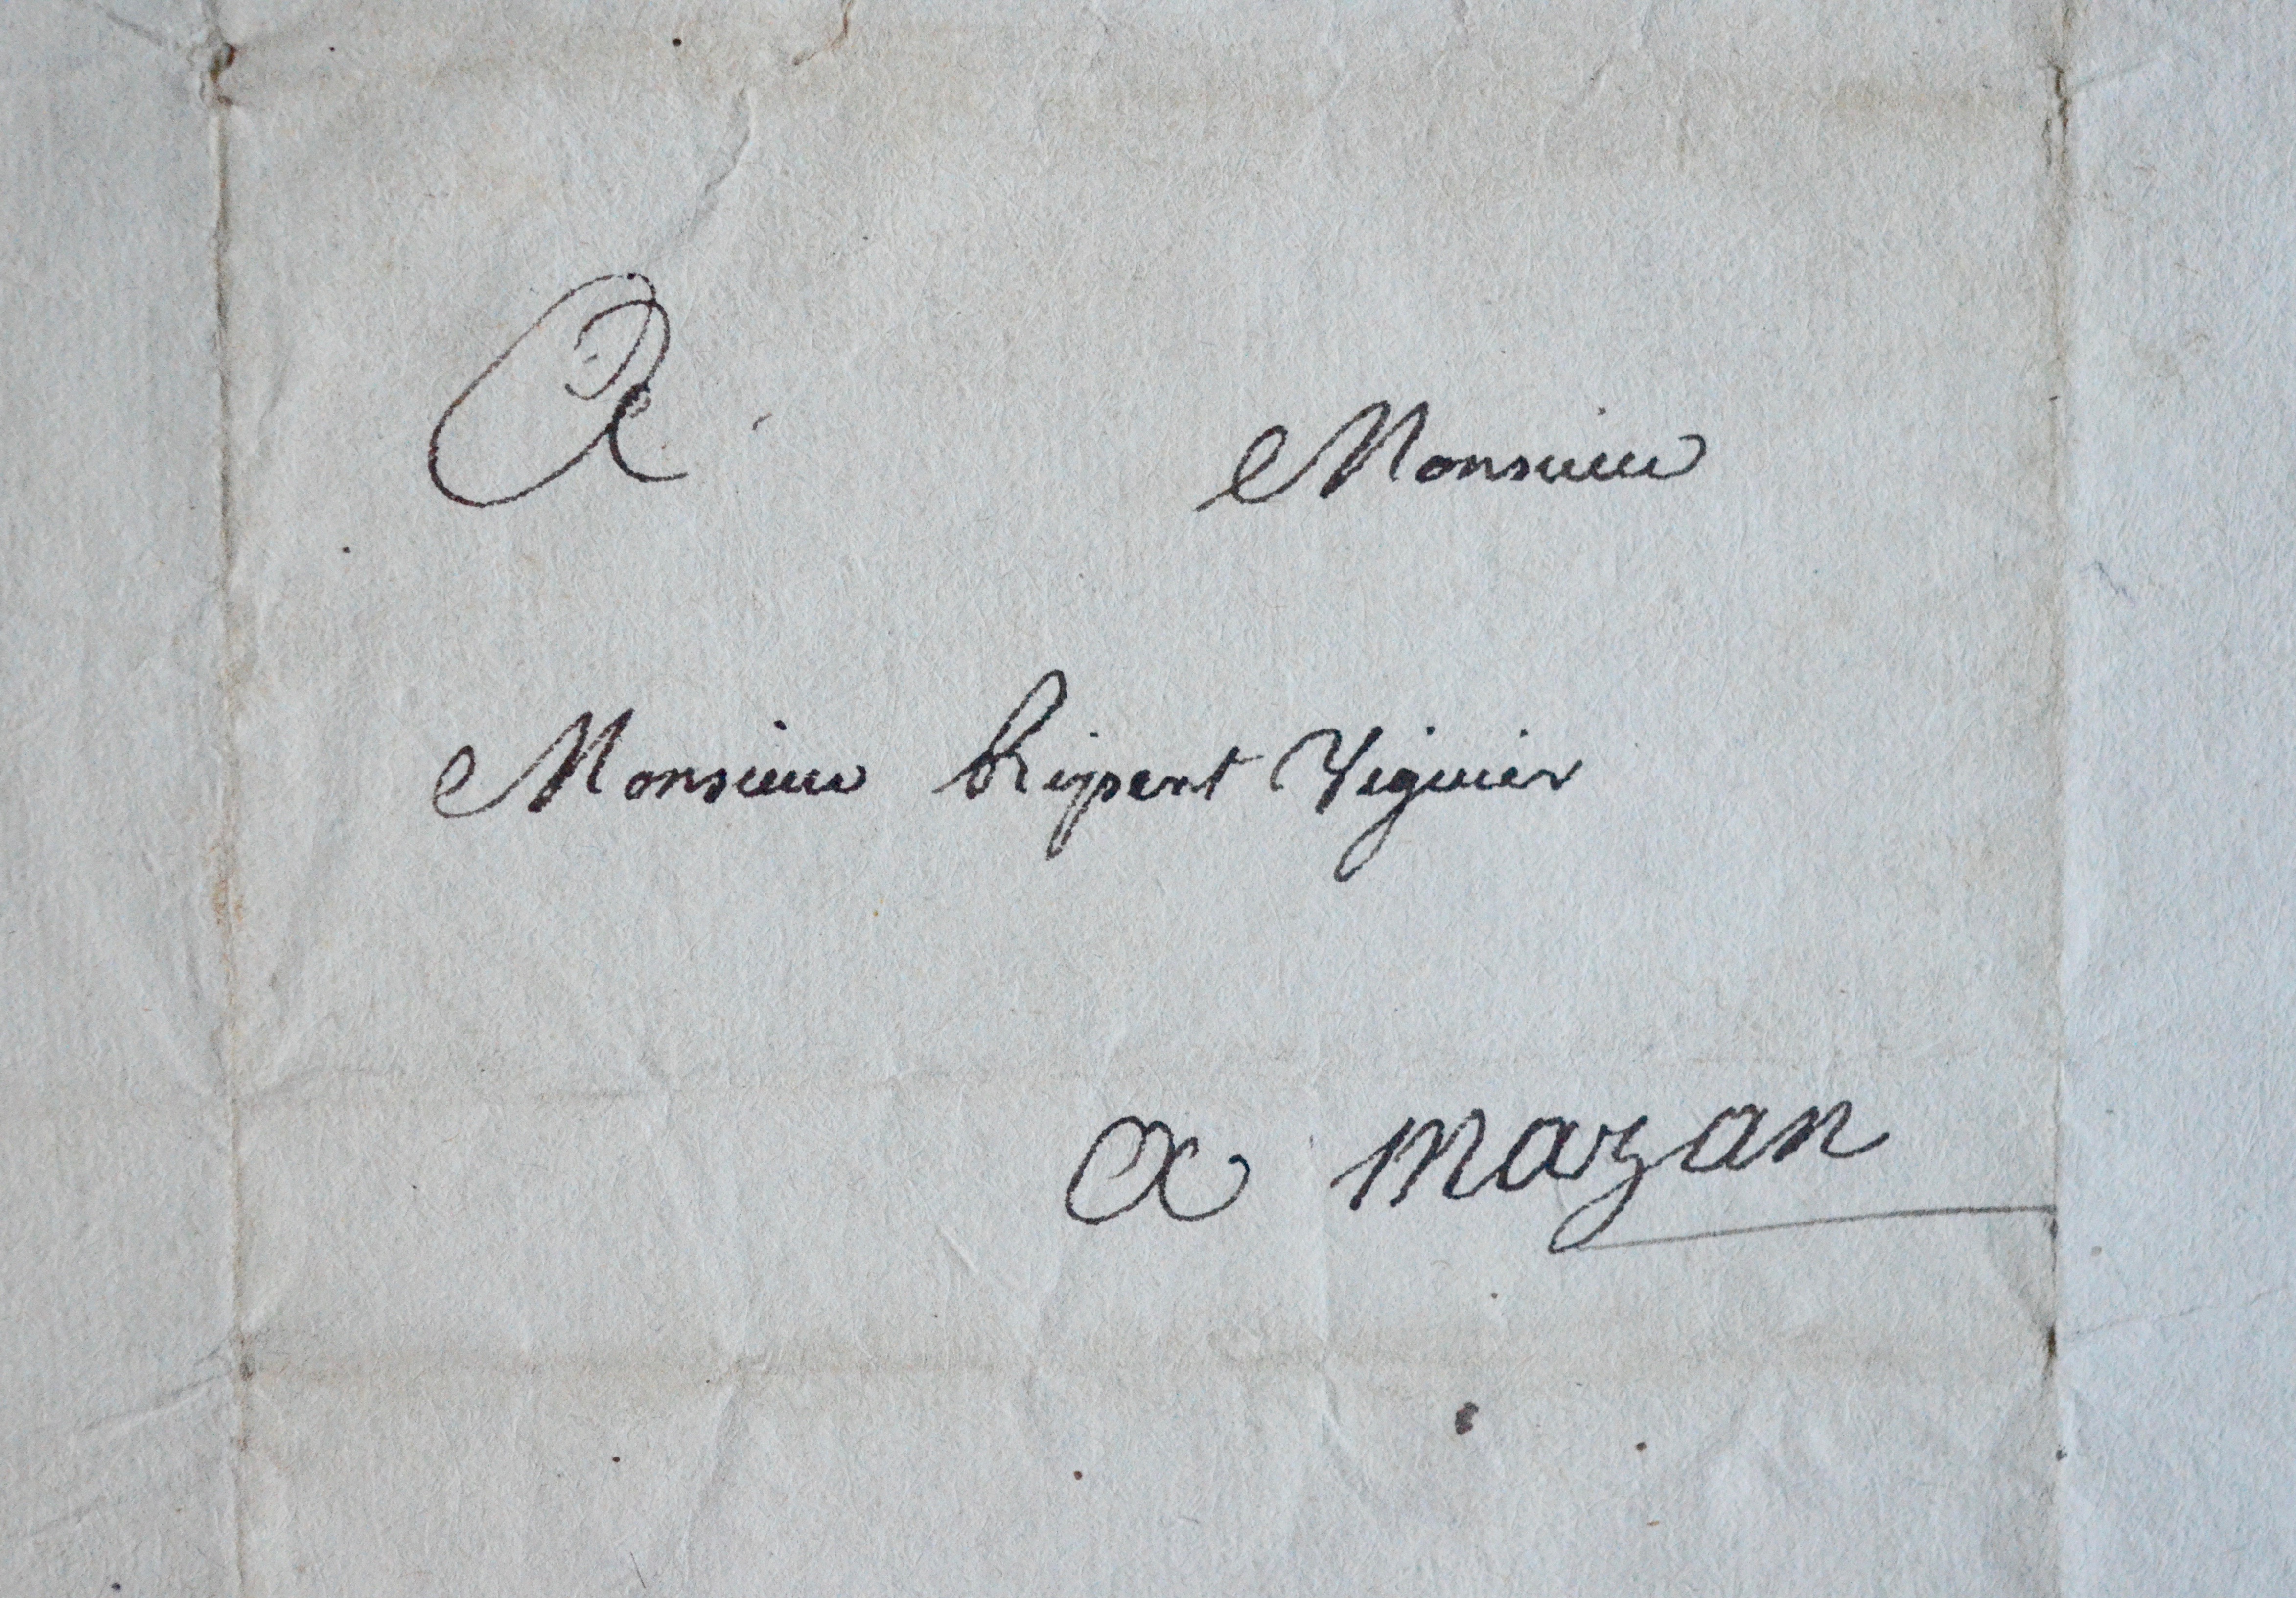 A Monsieur
Monsieur Ripert Viguier
A mazan